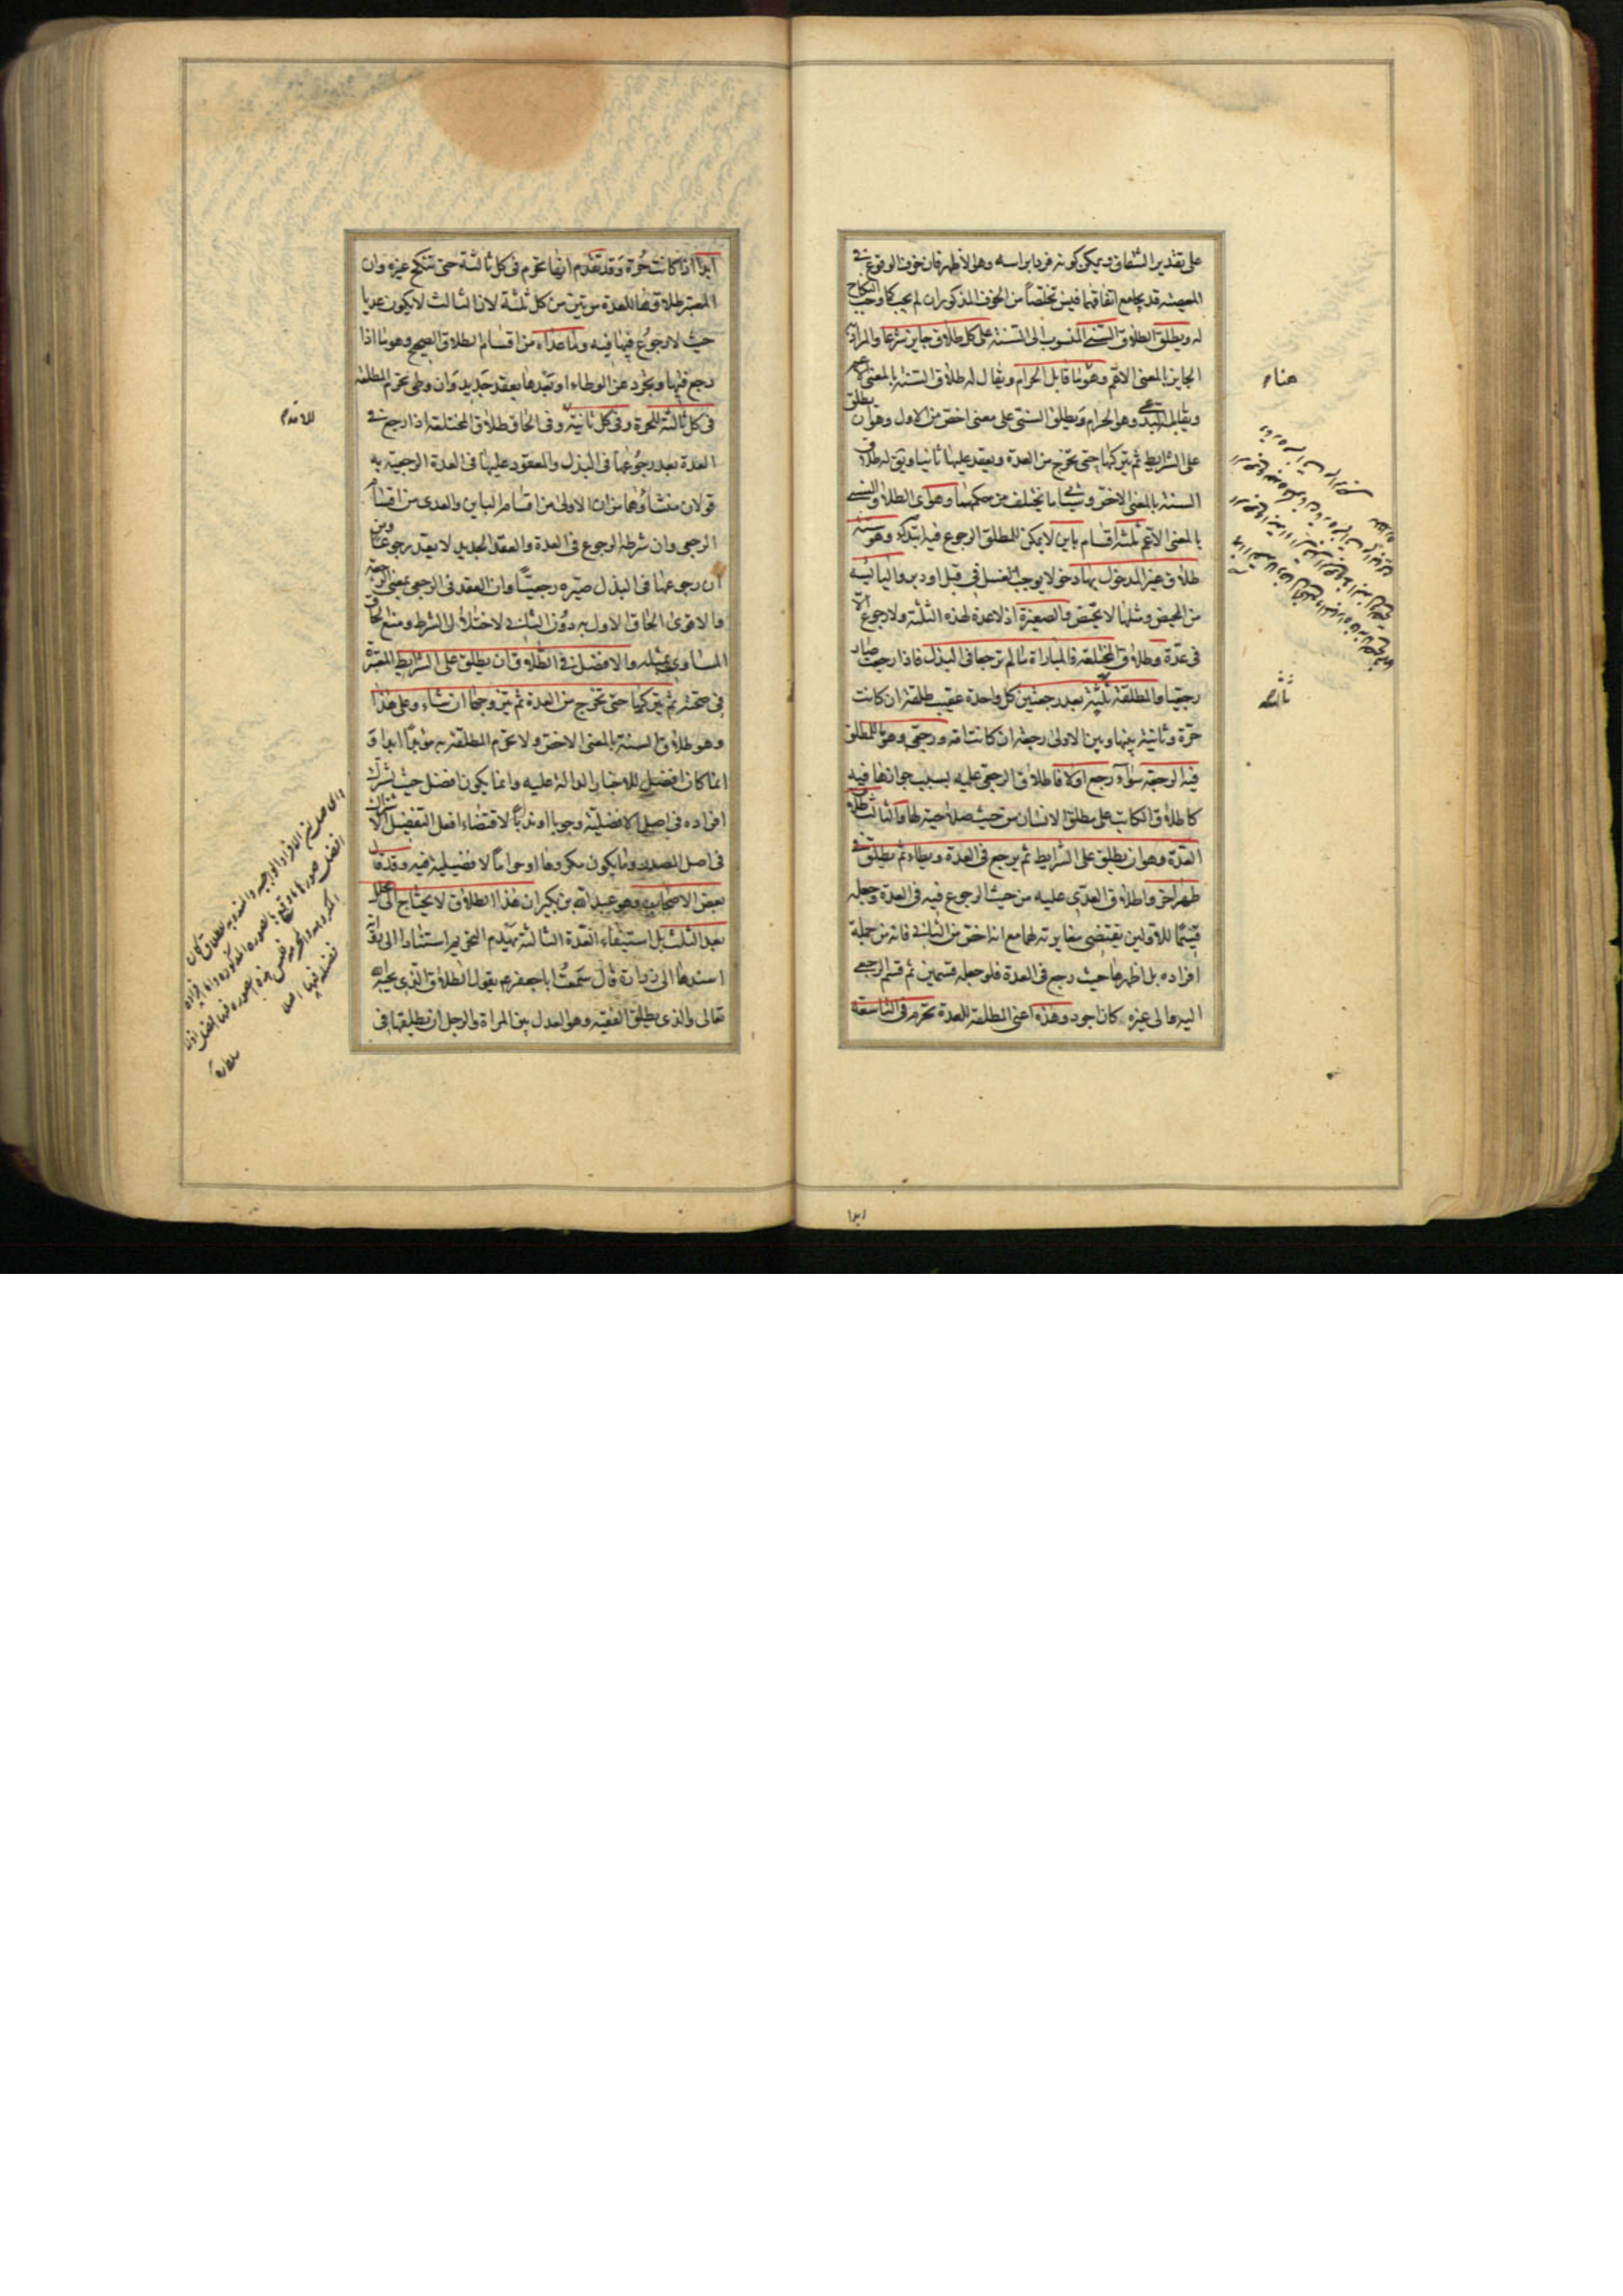 على تقدير الشقاق ويمكن كونه فردا براسه وهو الأظهر فان خوف الوقوع في
المعصية قد يجامع اتفاقهما فيسن تخلصاً من الخوف المذكور ان لم يجب كما وجب النكاح
له ويطلق الطلاق السني المنسوب الى السنة على كل طلاق جايز شرعا والمراد به
الجايز بالمعنى الاعم وهو ما قابل الحرام ويقال له طلاق السنة بالمعنى الاعم
ويقابله البدعي وهو الحرام ويطلق السني على معنى اخص من الاول وهو ان يطلق
على الشرايط ثم يتركها حتى تخرج من العدة ويعقد عليها ثانيا ويق له طلاق
السنة بالمعنى الاخص وسياتي ما يختلف من حكمهما وهو اى الطلاق السني
بالمعنى الاعم ثلثة اقسام باين لا يمكن للمطلق الرجوع فيه ابتداء وهو ستة
طلاق غير المدخول بها دخولا يوجب الغسل في قبل او دبر واليائسة
من المحيض ومثلها لا تحيض والصغيرة اذ لا عدة لهذه الثلثة ولا رجوع الا
في عدة وطلاق المختلعة والمباراة ما لم ترجعا في البذل فاذا رجعت صار
رجعيا والمطلقة ثلثة بعد رجعتين كل واحدة عقيب طلقة ان كانت
حرة وثانية بينها وبين الاولى رجعة ان كانت امة ورجعي وهو ما للمطلق
فيه الرجعة سواء رجع اولا فاطلاق الرجعي عليه بسبب جوازها فيه
كاطلاق الكاتب على مطلق الانسان من حيث صلاحيته لها والثالث طلاق
العدة وهو ان يطلق على الشرايط ثم يرجع في العدة ويطاء ثم يطلق في
طهر اخر واطلاق العدي عليه من حيث الرجوع فيه في العدة وجعله
قسيما للاولين يقتضي مغايرته لهما مع انه اخص من الثاني فانه من جملة
افراده بل اظهرها حيث رجع في العدة فلو جعله قسمين ثم قسم الرجعي
اليه والى غيره كان اجود وهذه اعني المطلقة للعدة تحرم في التاسعة
ابدا
ابدا اذا كانت حرة وقد تقدم انها تحرم في كل ثالثة حتى تنكح غيره وان
المعتبر طلاقها للعدة مرتين من كل ثلثة لان الثالث لا يكون عديا
حيث لا رجوع فيها فيه وما عداه من اقسام الطلاق الصحيح وهو ما اذا
رجع فيها وتجرد عن الوطاء او بعدها بعقد جديد وان وطى تحرم المطلقة
في كل ثالثة للحرة وفي كل ثانية وفي الحاق طلاق المختلعة اذا رجع في
العدة بعد رجوعها في البذل والمعقود عليها في العدة الرجعية به
قولان منشاؤهما من ان الاولى من اقسام الباين والعدى من اقسام
الرجعي وان شرطه الرجوع في العدة والعقد الجديد لا يعد رجوعا ومن
ان رجوعها في البذل صيره رجعياً وان العقد في الرجعي بمعنى الرجعة
والاقوى الحاق الاول به دون الثاني لاختلال الشرط ومنع الحاق
المساوى بمثله والافضل في الطلاق ان يطلق على الشرايط المعتبرة
في صحته ثم يتركها حتى تخرج من العدة ثم يتزوجها ان شاء وعلى هذا
وهو طلاق السنة بالمعنى الاخص ولا تحرم المطلقة به مؤبداً ابدا و
انما كان افضل للاخبار الدالة عليه وانما يكون افضل حيث تشترك
افراده في اصل الافضلية وجوبا او ندباً لاقتضاء افعل التفضيل الاشتراك
في اصل المصدر وما يكون مكروها او حراماً لا فضيلية فيه وقد قال
بعض الاصحاب وهو عبد الله بن بكير ان هذا الطلاق لا يحتاج الى محلل
بعد الثلث بل استيفاء العدة الثالثة يهدم التحريم استنادا الى رواية
اسندها الى زرارة قال سمعت ابا جعفر ع يقول الطلاق الذي يحبه الله
تعالى والذي يطلق الفقيه وهو العدل بين المراة والرجل ان يطلقها في